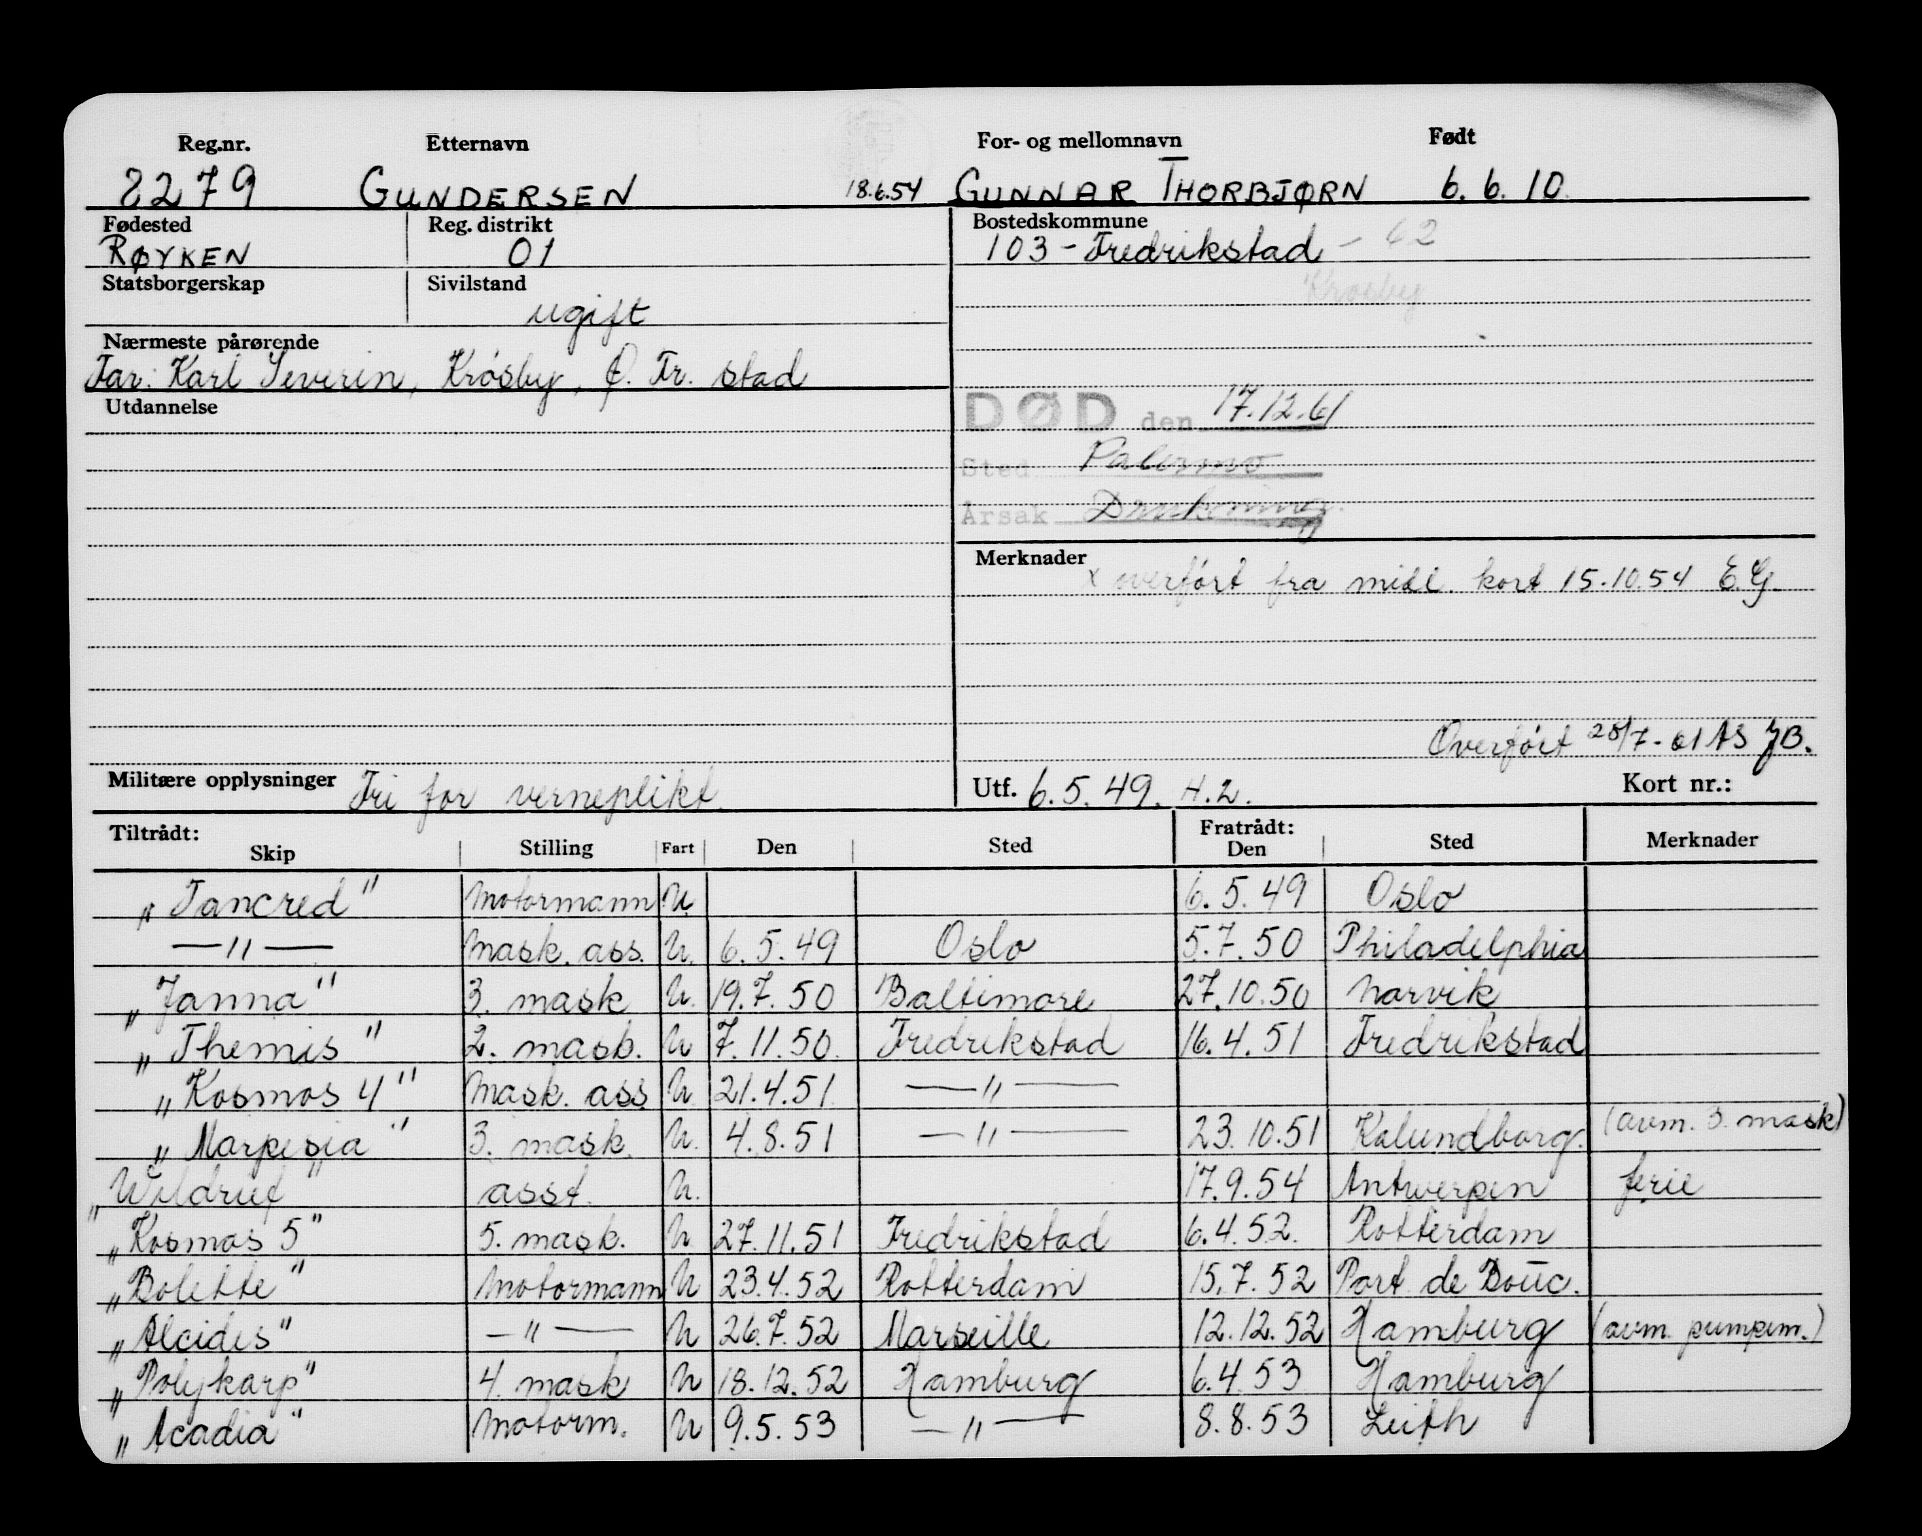 Reg.nr. Etternavn For- og mellomnavn Født
8279 GUNDERSEN 18.6.54 GUNNAR THORBJØRN 6.6.10.
Fødested Reg. distrikt Bostedskommune
RØYKEN 01 103 - Fredrikstad - 62
Statsborgerskap Sivilstand Krosby
ugift
Nærmeste pårørende
Far: Karl Severin, Krósby, Ø. Fr. stad
Utdannelse
DØD den 17.12.61
Sted Palermo
Årsak Drukning.
Merknader
x overført fra midl. kort 15.10.54 E.G.
Overført 28/7-61 AS
Militære opplysninger Fri for verneplikt. Utf. 6.5.49. H.2. Kort nr.:
Tiltrådt: Fratrådt:
Skip Stilling Fart Den Sted Den Sted Merknader
„Tancred" Motormann U. 6.5.49 Oslo
—"— Mask. ass. U. 6.5.49 Oslo 5.7.50 Philadelphia
„Janna" 3. mask. U. 19.7.50 Baltimore 27.10.50 Narvik
„Themis" 2. mask. U 7.11.50. Fredrikstad 16.4.51 Fredrikstad
„Kosmos 4" Mask. ass U. 21.4.51 —"—
„Marpesia" 3. mask. U. 4.8.51 —"— 23.10.51 Kalundborg. (avm. 3. mask)
asst. U. 17.9.54 Antwerpen ferie
„Kosmos 5" 5. mask. U 27.11.51 Fredrikstad 6.4.52. Rotterdam
„Bolette" Motormann U 23.4.52 Rotterdam 15.7.52 Port de Bouc.
„Alcides" —"— U 26.7.52 Marseille 12.12.52 Hamburg (avm. pumpem.)
„Polykarp" 4. mask U 18.12.52 Hamburg 6.4.53 Hamburg
„Acadia" Motorm. U 9.5.53 —"— 8.8.53 Leith